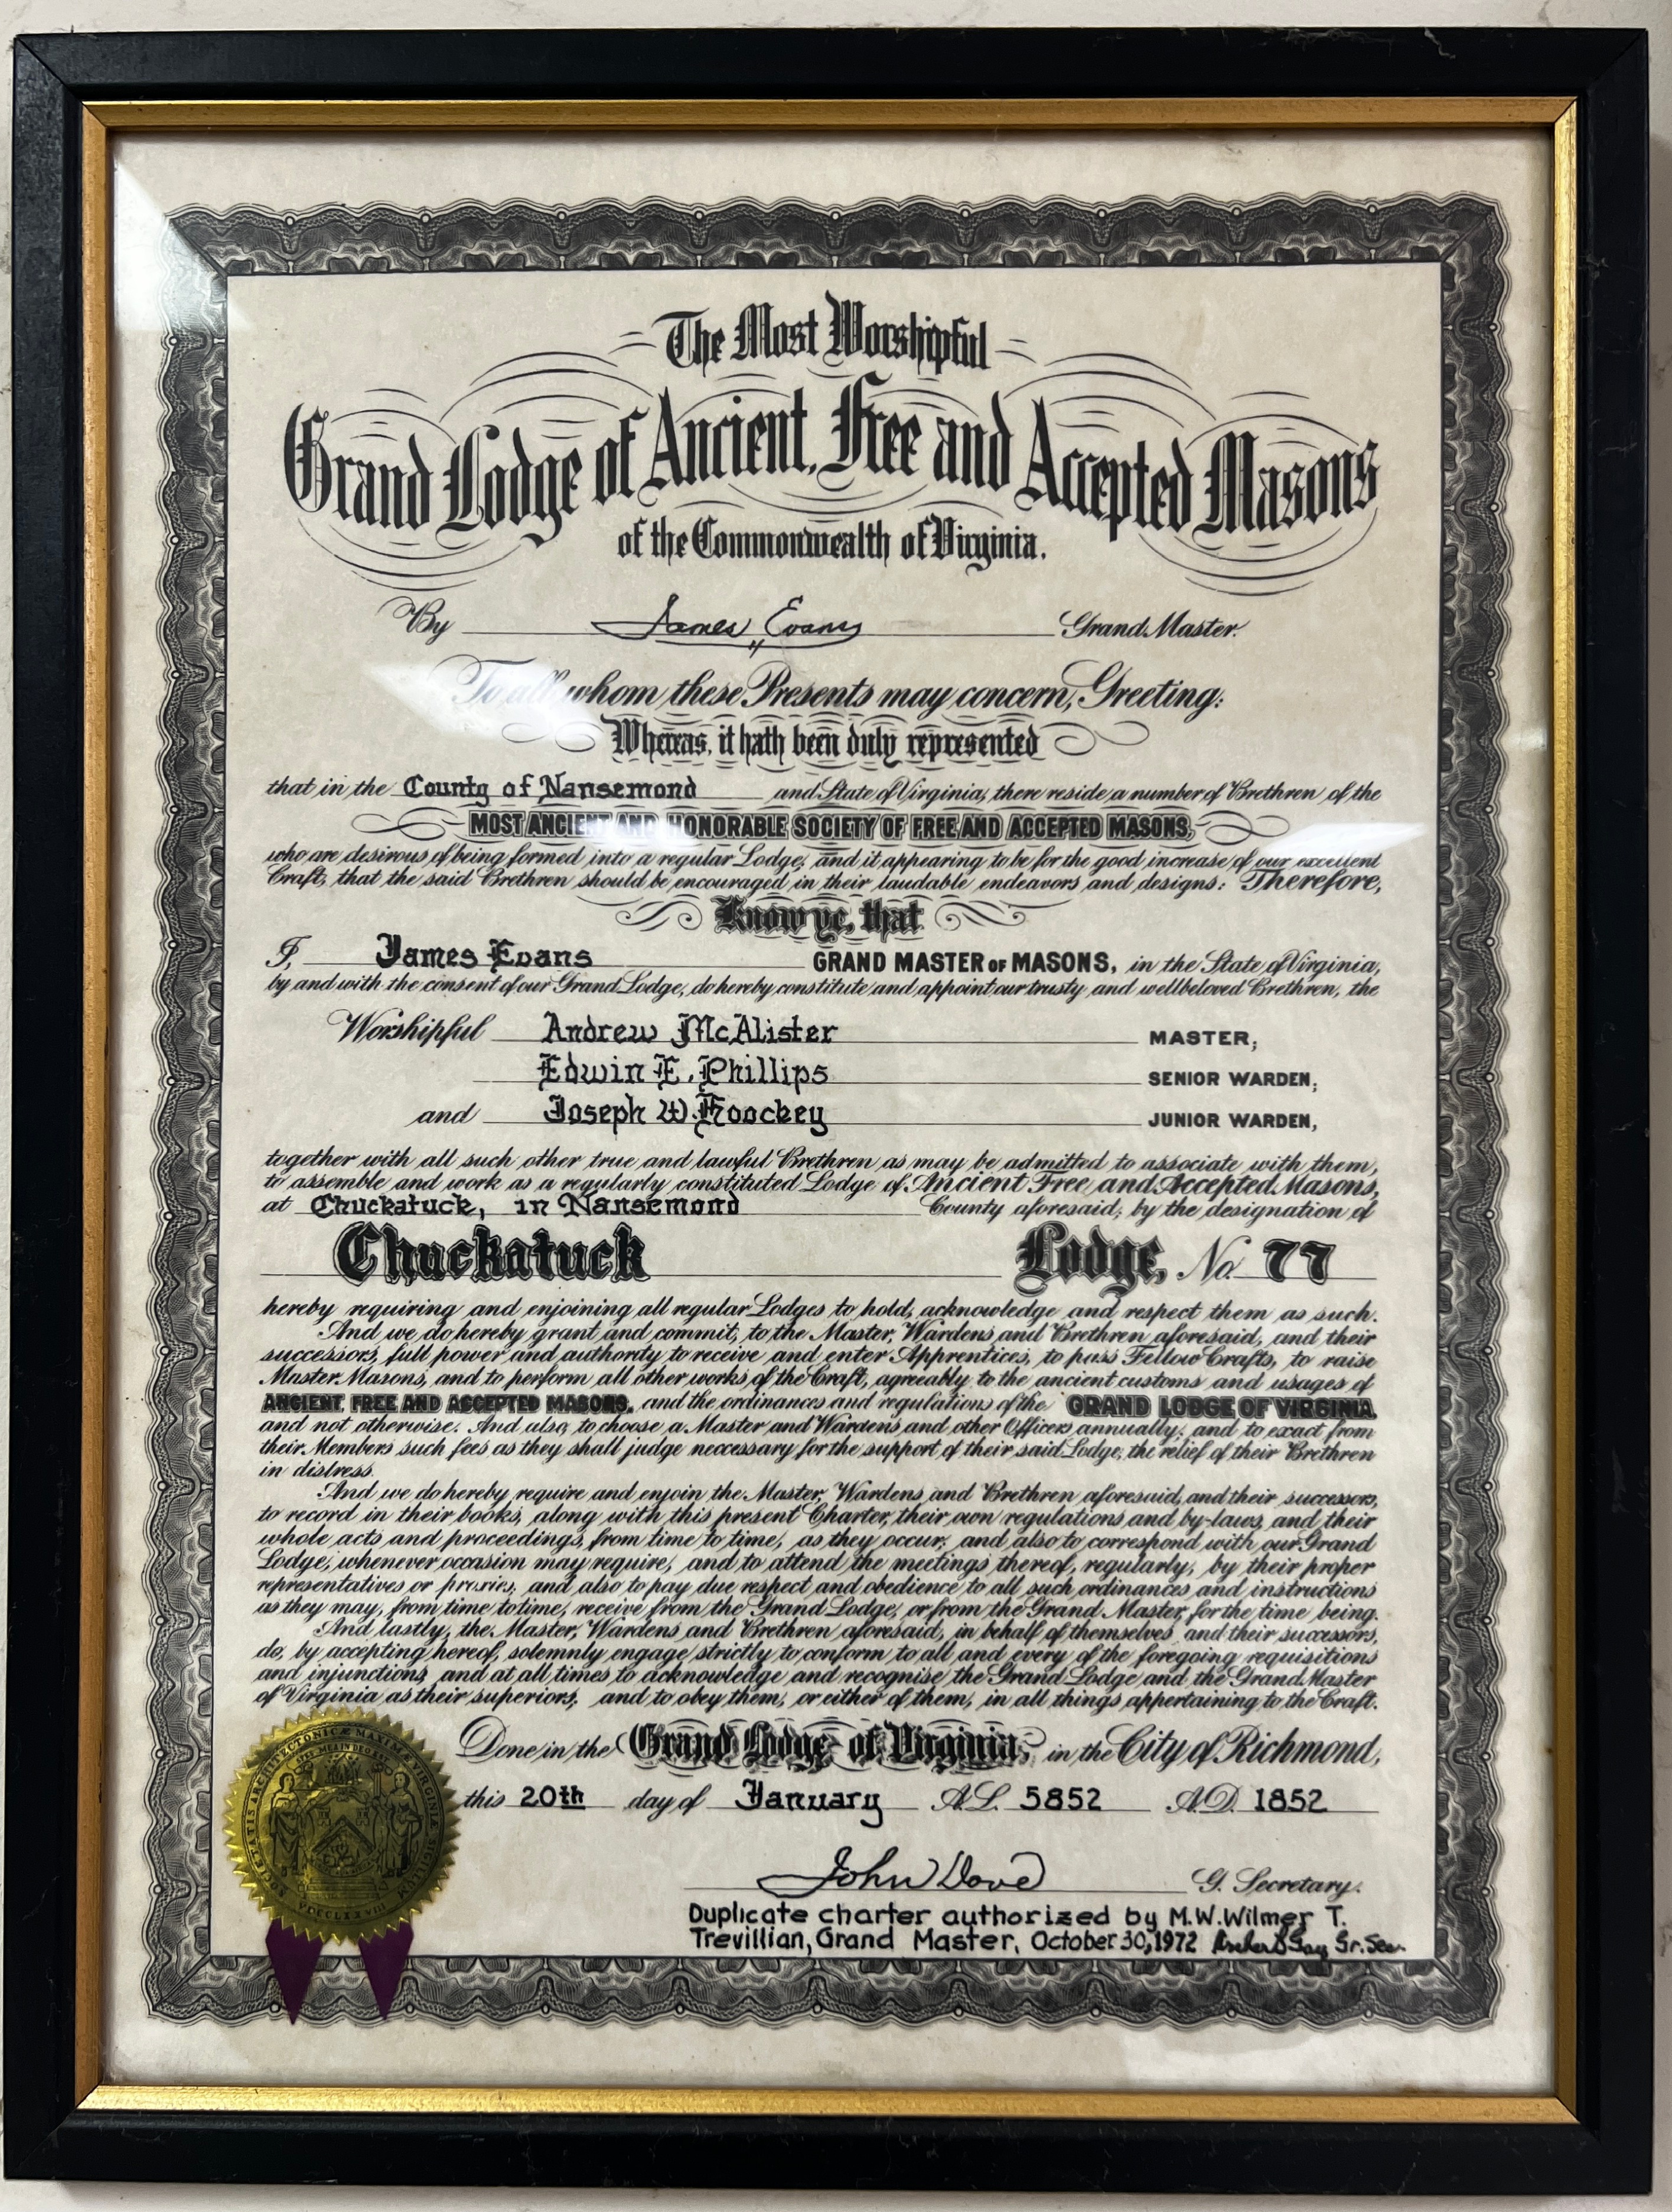 The Most Worshipful
Grand Lodge of Ancient, Free and Accepted Masons
of the Commonwealth of Virginia.
By James Evans Grand Master.
To all whom these Presents may concern, Greeting:
Whereas, it hath been duly represented
that in the County of Nansemond and State of Virginia, there reside a number of Brethren of the
MOST ANCIENT AND HONORABLE SOCIETY OF FREE AND ACCEPTED MASONS,
who are desirous of being formed into a regular Lodge, and it appearing to be for the good increase of our excellent
Craft, that the said Brethren should be encouraged in their laudable endeavors and designs: Therefore,
Know ye, that
I, James Evans GRAND MASTER OF MASONS, in the State of Virginia,
by and with the consent of our Grand Lodge, do hereby constitute and appoint our trusty and wellbeloved Brethren, the
Worshipful Andrew McAlister MASTER,
Edwin E. Phillips SENIOR WARDEN,
and Joseph W. Hoockey JUNIOR WARDEN,
together with all such other true and lawful Brethren as may be admitted to associate with them,
to assemble and work as a regularly constituted Lodge of Ancient Free and Accepted Masons,
at Chuckatuck, in Nansemond County aforesaid, by the designation of
Chuckatuck Lodge, No. 77
hereby requiring and enjoining all regular Lodges to hold, acknowledge and respect them as such.
And we do hereby grant and commit, to the Master, Wardens and Brethren aforesaid, and their
successors, full power and authority to receive and enter Apprentices, to pass Fellow Crafts, to raise
Master Masons, and to perform all other works of the Craft, agreeably to the ancient customs and usages of
ANCIENT, FREE AND ACCEPTED MASONS, and the ordinances and regulations of the GRAND LODGE OF VIRGINIA
and not otherwise. And also, to choose a Master and Wardens and other Officers annually, and to exact from
their Members such fees as they shall judge neccessary for the support of their said Lodge, the relief of their Brethren
in distress.
And we do hereby require and enjoin the Master, Wardens and Brethren aforesaid, and their successors,
to record in their books, along with this present Charter, their own regulations and by-laws, and their
whole acts and proceedings, from time to time, as they occur, and also to correspond with our Grand
Lodge, whenever occasion may require, and to attend the meetings thereof, regularly, by their proper
representatives or proxies, and also to pay due respect and obedience to all such ordinances and instructions
as they may, from time to time, receive from the Grand Lodge, or from the Grand Master, for the time being.
And lastly, the Master, Wardens and Brethren aforesaid, in behalf of themselves and their successors,
do, by accepting hereof, solemnly engage strictly to conform to all and every of the foregoing requisitions
and injunctions, and at all times to acknowledge and recognise the Grand Lodge and the Grand Master
of Virginia as their superiors, and to obey them, or either of them, in all things appertaining to the Craft.
Done in the Grand Lodge of Virginia, in the City of Richmond,
this 20th day of January A.L. 5852 A.D. 1852
John Dove G. Secretary.
Duplicate charter authorized by M.W. Wilmer T.
Trevillian, Grand Master, October 30, 1972 Gr. Sec.